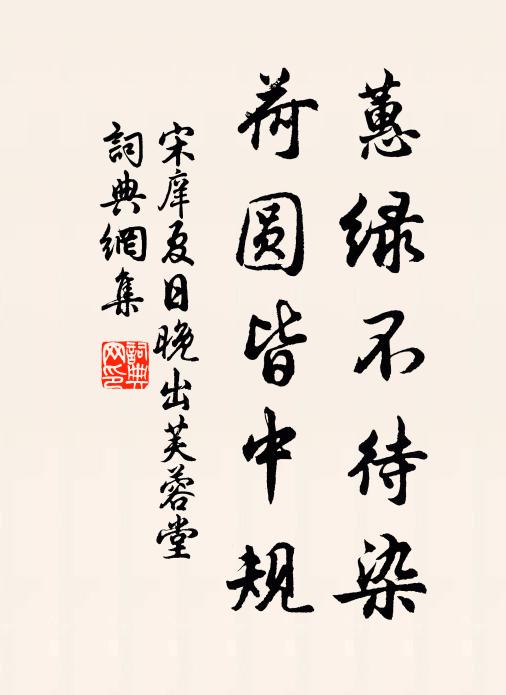 蕙绿不待染
荷圆皆中规
宋庠夏日晚出芙蓉堂
詞典網集
詞典网印